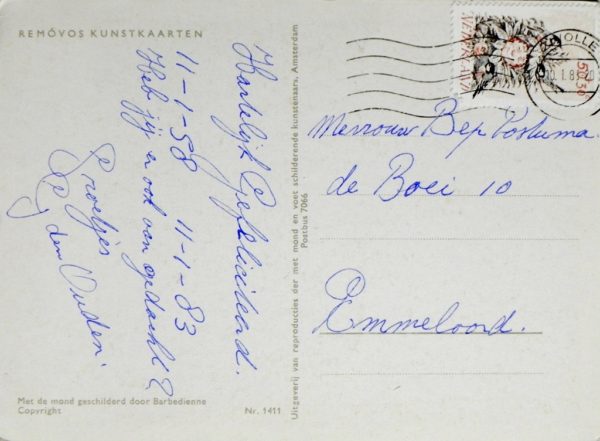 REMÓVOS KUNSTKAARTEN
Hartelijk Gefeliciteerd.
11-1-58 11-1-83
Heb jij er ook van gedacht?
Groetjes
den Ouden.
Met de mond geschilderd door Barbedienne
Copyright
Nr. 1411
Uitgeverij van reproducties der met mond en voet schilderende kunstenaars, Amsterdam
Postbus 7066
Mevrouw Bep Postuma.
de Boei 10
Emmeloord.